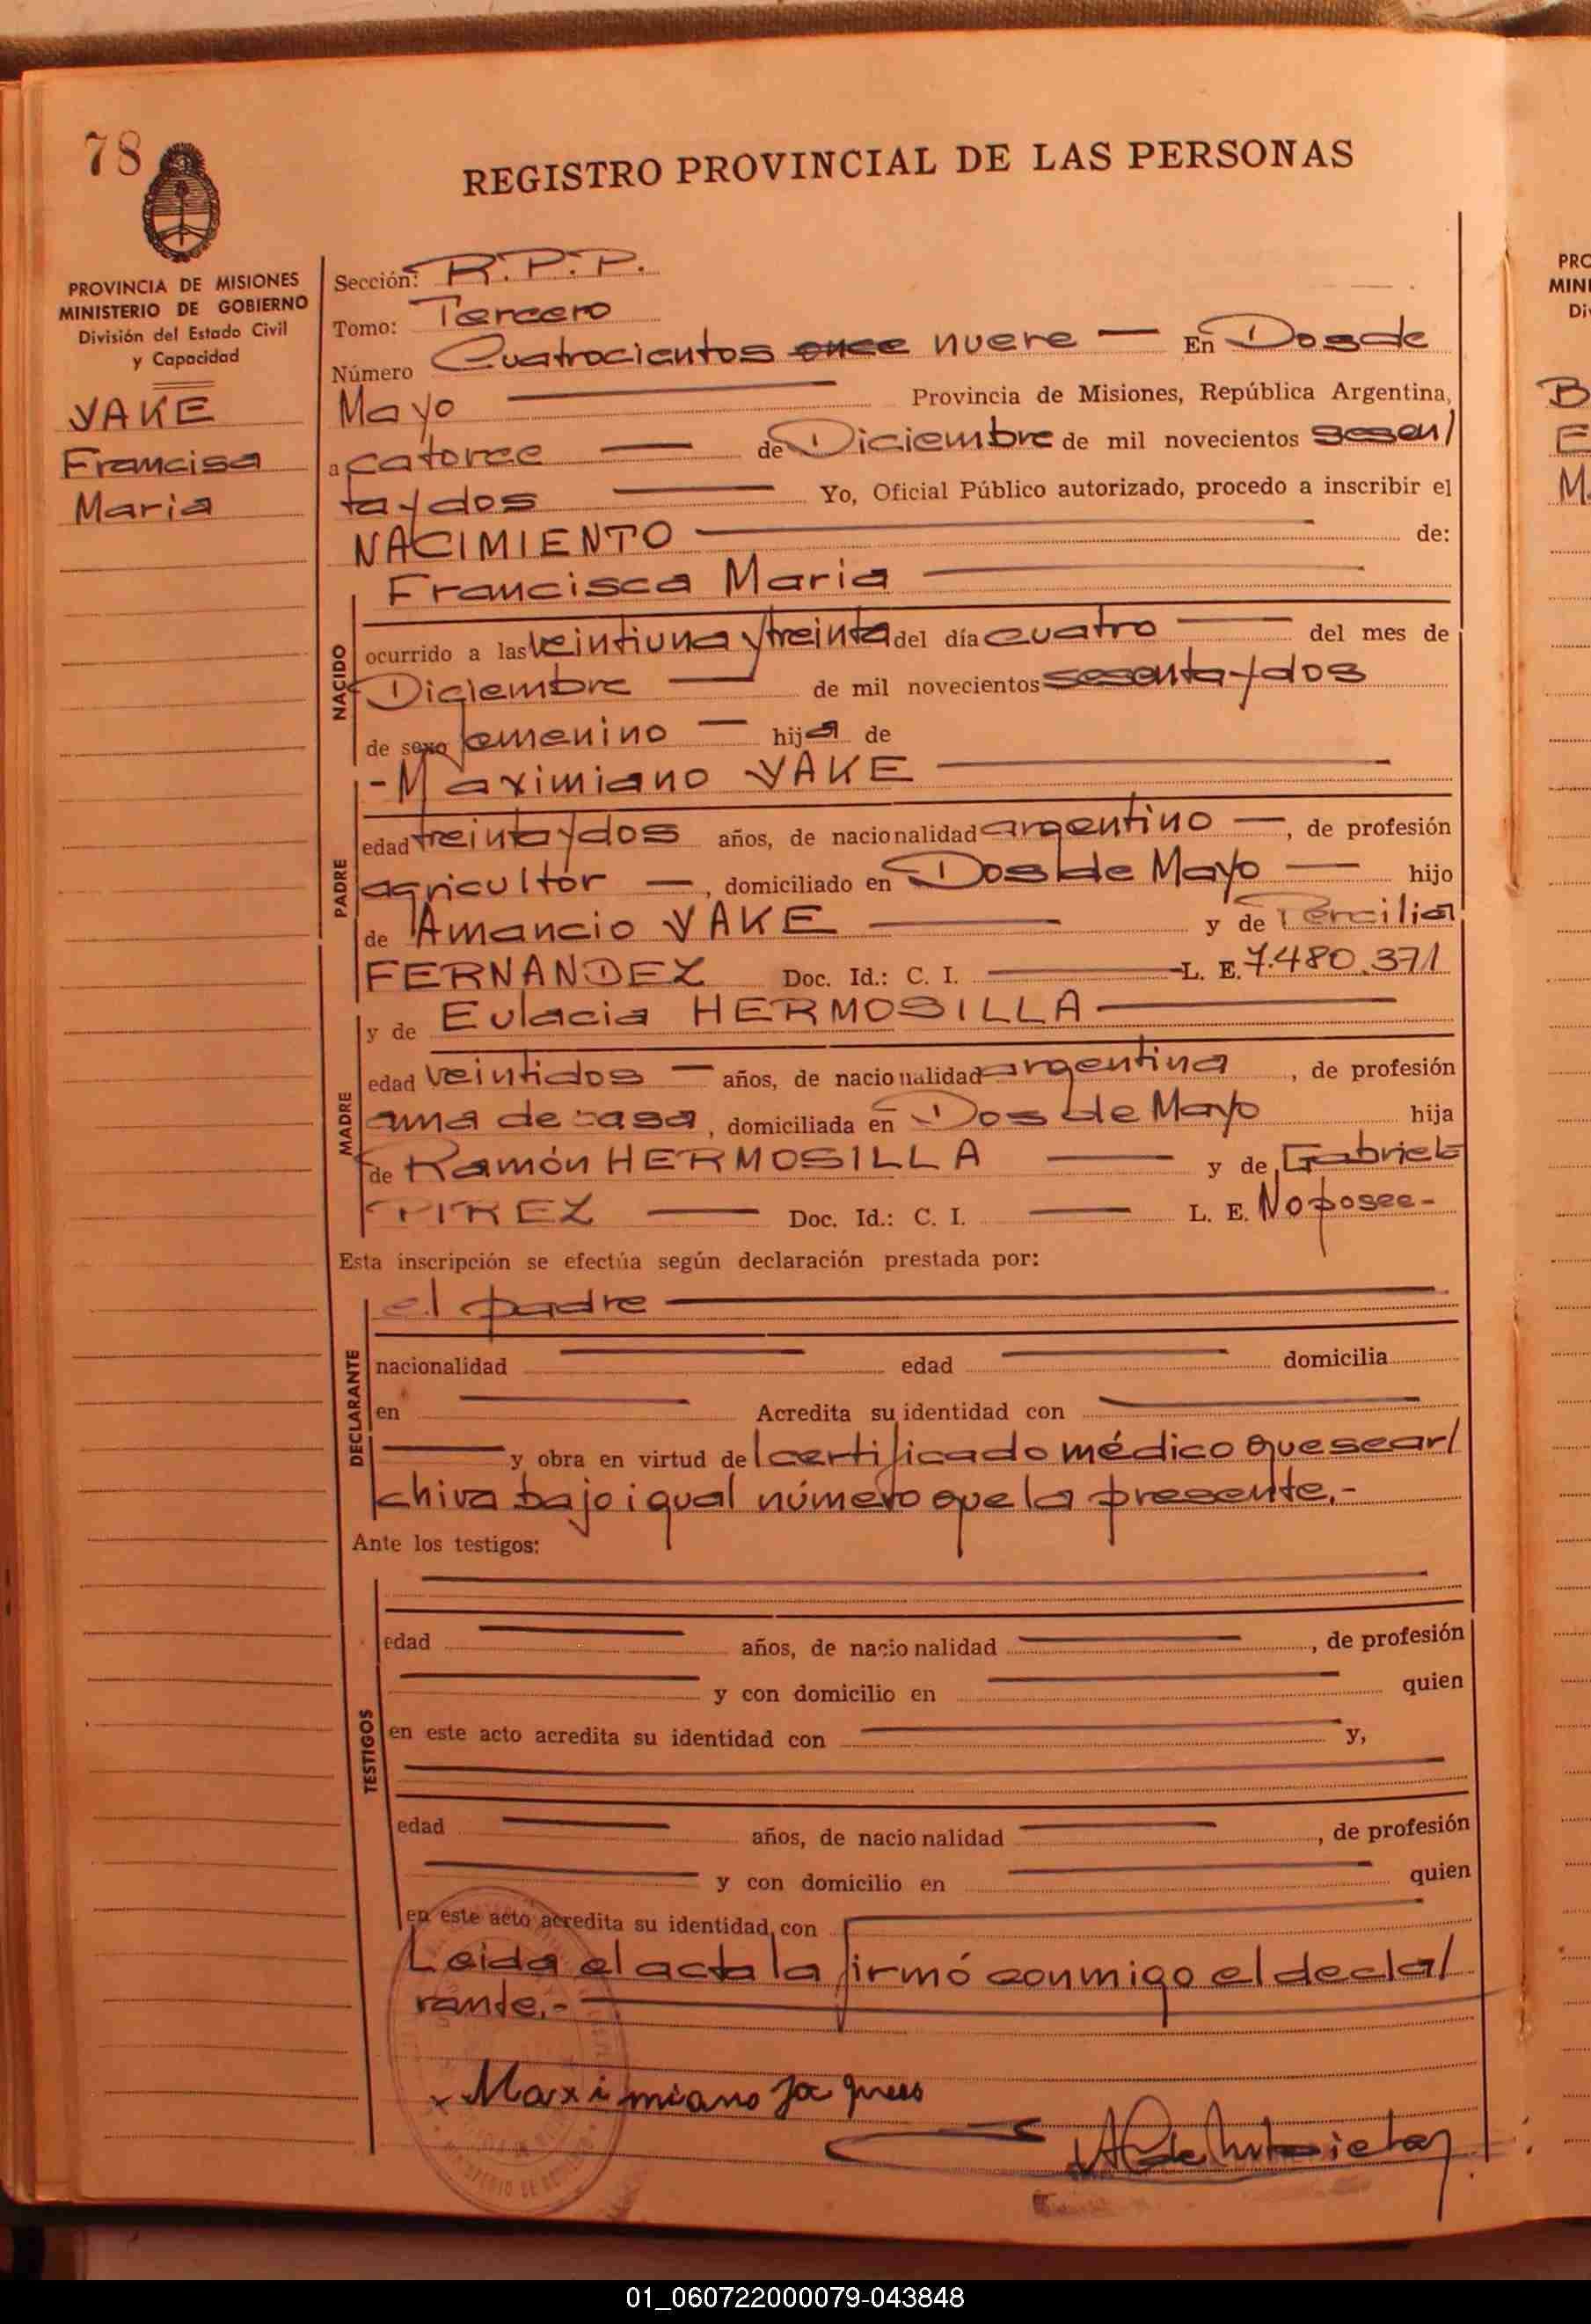 78
REGISTRO PROVINCIAL DE LAS PERSONAS
PROVINCIA DE MISIONES
MINISTERIO DE GOBIERNO
División del Estado Civil
y Capacidad
YAKE
Francisa
Maria
Sección: R.P.P.
Tomo: Tercero
Número Cuatrocientos once nueve — En Dos de
Mayo — Provincia de Misiones, República Argentina,
a catorce — de Diciembre de mil novecientos sesen/
ta y dos — Yo, Oficial Público autorizado, procedo a inscribir el
NACIMIENTO — de:
Francisca Maria —
NACIDO
ocurrido a las veintiuna y treinta del día cuatro — del mes de
Diciembre — de mil novecientos sesenta y dos
de sexo femenino — hija de
-Maximiano YAKE —
PADRE
edad treinta y dos años, de nacionalidad argentino —, de profesión
agricultor —, domiciliado en Dos de Mayo — hijo
de Amancio YAKE — y de Percilia
FERNANDEZ Doc. Id.: C. I. — L. E. 7.480.371
y de Eulacia HERMOSILLA —
MADRE
edad veintidos — años, de nacionalidad argentina, de profesión
ama de casa, domiciliada en Dos de Mayo hija
de Ramón HERMOSILLA — y de Gabriela
PIREZ — Doc. Id.: C. I. — L. E. No posee-
Esta inscripción se efectúa según declaración prestada por:
el padre —
DECLARANTE
nacionalidad — edad — domicilia
en — Acredita su identidad con —
— y obra en virtud del certificado médico que se ar/
chiva bajo igual número que la presente.-
Ante los testigos:
TESTIGOS
edad — años, de nacionalidad —, de profesión
— y con domicilio en — quien
en este acto acredita su identidad con — y,
edad — años, de nacionalidad —, de profesión
— y con domicilio en — quien
en este acto acredita su identidad con —
Leida el acta la firmó conmigo el decla/
rante.- —
Maximiano Ja ques
PRO
MINI
Di
B
E
M.
01_060722000079-043848